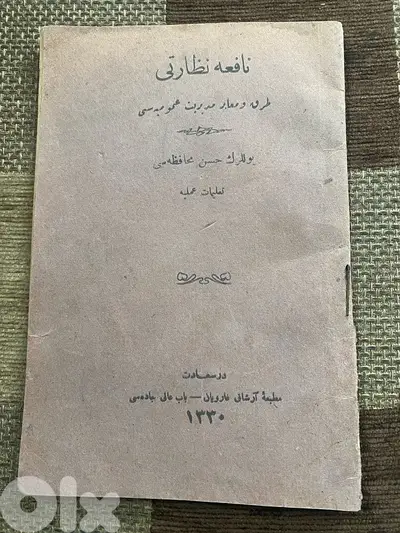 نافعه نظارتی
طرق و معابر مدیریت عمومیه‌سی
یوللرك حسن محافظه‌سی
تعلیمات عملیه
درسعادت
مطبعهٔ آرشاق غارویان — باب عالی جاده‌سی
١٣٣٠
OLX